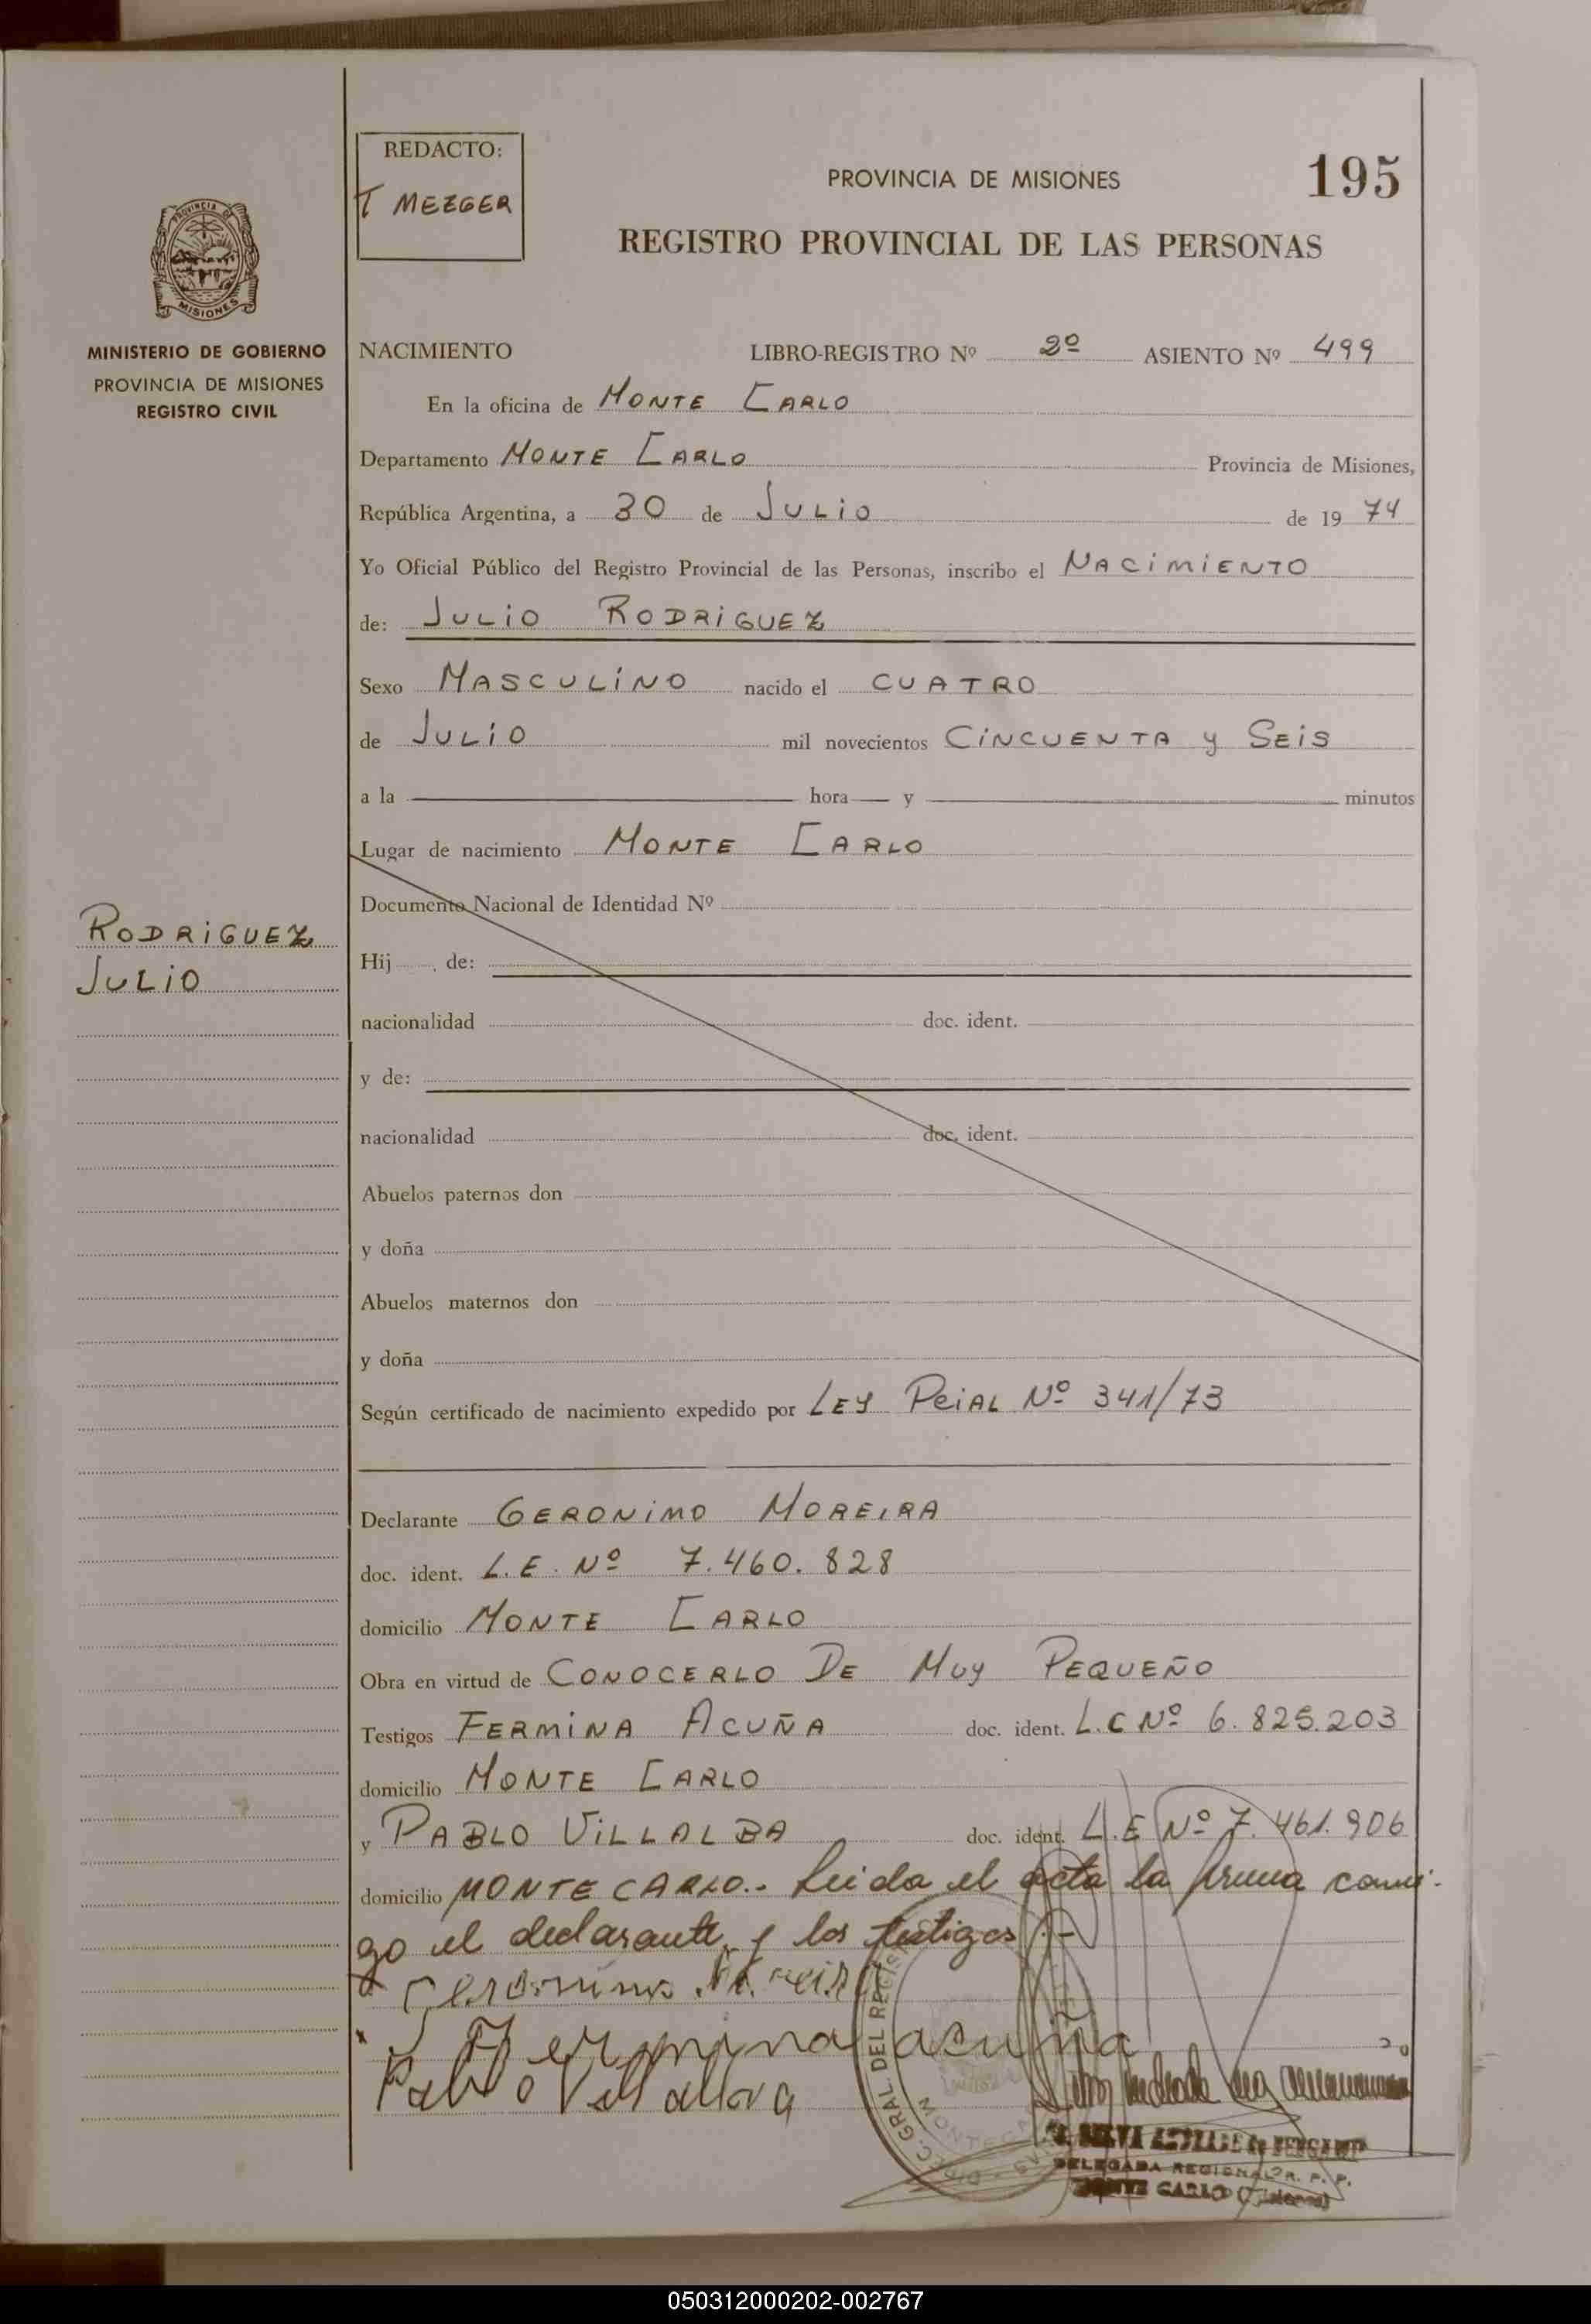 REDACTO:
T MEZGER
PROVINCIA DE MISIONES
195
REGISTRO PROVINCIAL DE LAS PERSONAS
PROVINCIA DE
MISIONES
MINISTERIO DE GOBIERNO
PROVINCIA DE MISIONES
REGISTRO CIVIL
NACIMIENTO LIBRO-REGISTRO Nº 2º ASIENTO Nº 499
En la oficina de MONTE CARLO
Departamento MONTE CARLO Provincia de Misiones,
República Argentina, a 30 de JULIO de 19 74
Yo Oficial Público del Registro Provincial de las Personas, inscribo el NACIMIENTO
de: JULIO RODRIGUEZ
Sexo MASCULINO nacido el CUATRO
de JULIO mil novecientos CINCUENTA y SEIS
a la hora y minutos
Lugar de nacimiento MONTE CARLO
Documento Nacional de Identidad Nº
RODRIGUEZ
JULIO
Hij de:
nacionalidad doc. ident.
y de:
nacionalidad doc. ident.
Abuelos paternos don
y doña
Abuelos maternos don
y doña
Según certificado de nacimiento expedido por LEY PCIAL Nº 341/73
Declarante GERONIMO MOREIRA
doc. ident. L.E. Nº 7.460.828
domicilio MONTE CARLO
Obra en virtud de CONOCERLO DE MUY PEQUEÑO
Testigos FERMINA ACUÑA doc. ident. L.C Nº 6.825.203
domicilio MONTE CARLO
y PABLO VILLALBA doc. ident. L.E Nº 7.461.906
domicilio MONTE CARLO.- Leida el acta la firma conmi-
go el declarante y los testigos.-
Geronimo
Fermina acuña
Pablo Villalva
DIREC. GRAL. DEL
DELEGADA REGIONAL R. P. P.
MONTE CARLO (Misiones)
050312000202-002767